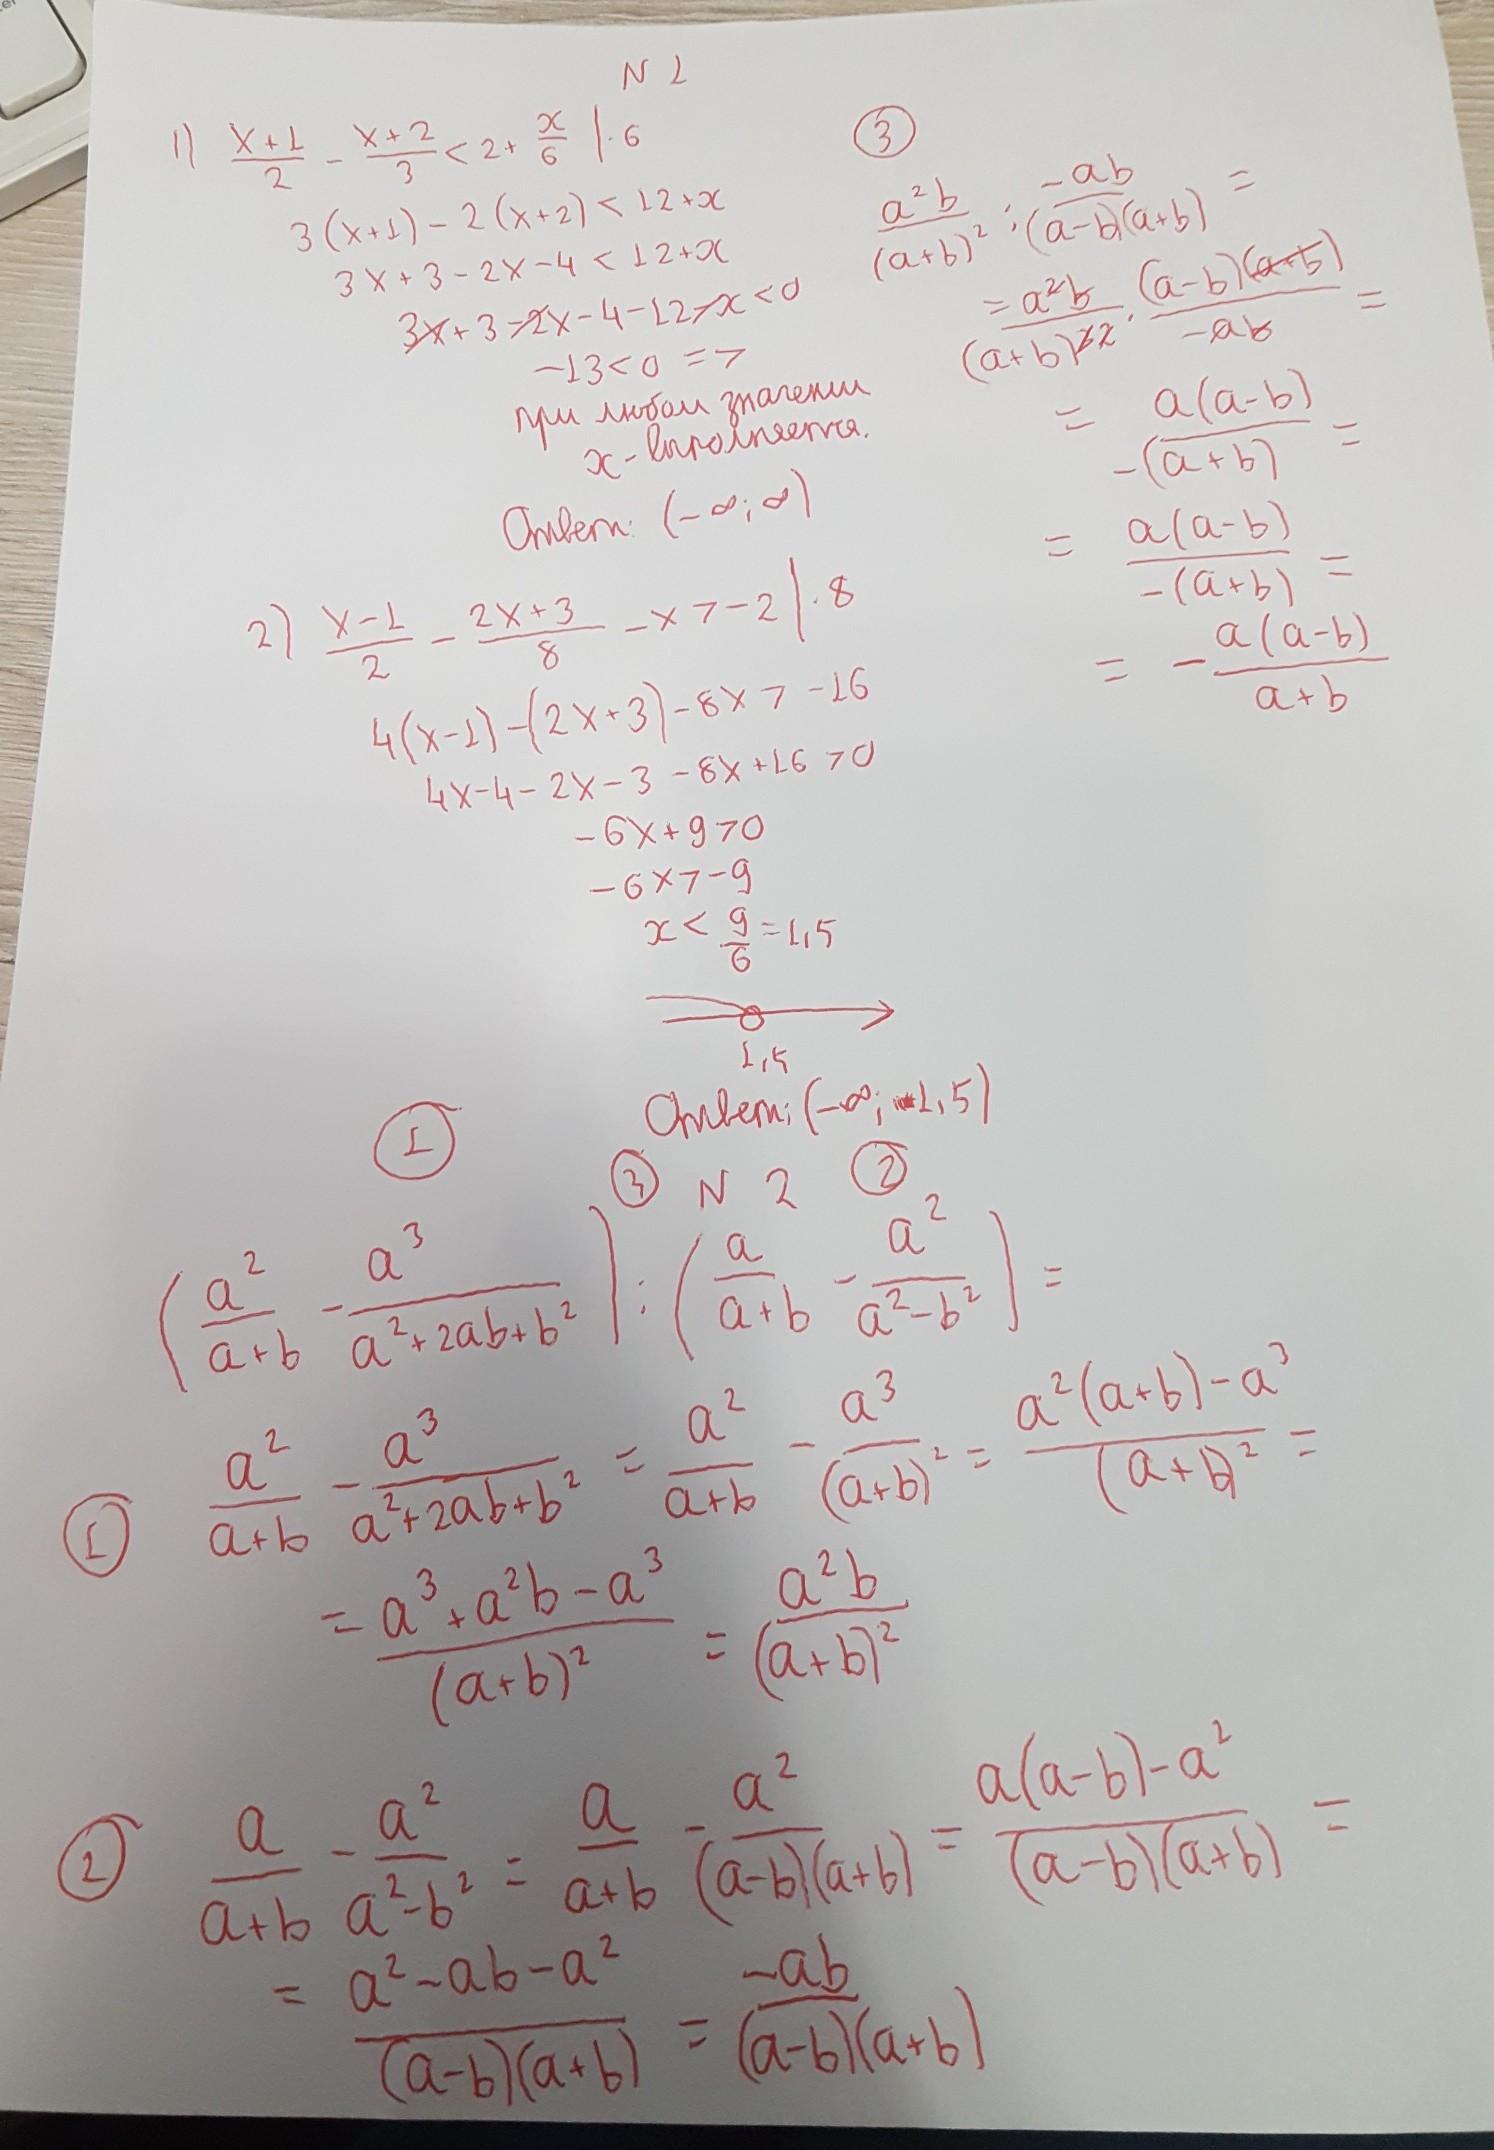 N 1
1) (x+1)/2 - (x+2)/3 < 2 + x/6 | · 6
3(x+1) - 2(x+2) < 12+x
3x+3-2x-4 < 12+x
3x+3-2x-4-12-x<0
-13<0 =>
при любом значении
x - выполняется.
Ответ: (-∞; ∞)
2) (x-1)/2 - (2x+3)/8 - x > -2 | · 8
4(x-1)-(2x+3)-8x > -16
4x-4-2x-3-8x+16 >0
-6x+9>0
-6x>-9
x < 9/6 = 1,5
1,5
Ответ: (-∞; 1,5)
③
a²b/(a+b)² : -ab/((a-b)(a+b)) =
= a²b/(a+b)² · (a-b)(a+b)/(-ab) =
= a(a-b)/(-(a+b)) =
= a(a-b)/(-(a+b)) =
= - a(a-b)/(a+b)
① ③ N 2 ②
(a²/(a+b) - a³/(a²+2ab+b²)) : (a/(a+b) - a²/(a²-b²)) =
① a²/(a+b) - a³/(a²+2ab+b²) = a²/(a+b) - a³/(a+b)² = (a²(a+b)-a³)/(a+b)² =
= (a³+a²b-a³)/(a+b)² = a²b/(a+b)²
② a/(a+b) - a²/(a²-b²) = a/(a+b) - a²/((a-b)(a+b)) = (a(a-b)-a²)/((a-b)(a+b)) =
= (a²-ab-a²)/((a-b)(a+b)) = -ab/((a-b)(a+b))